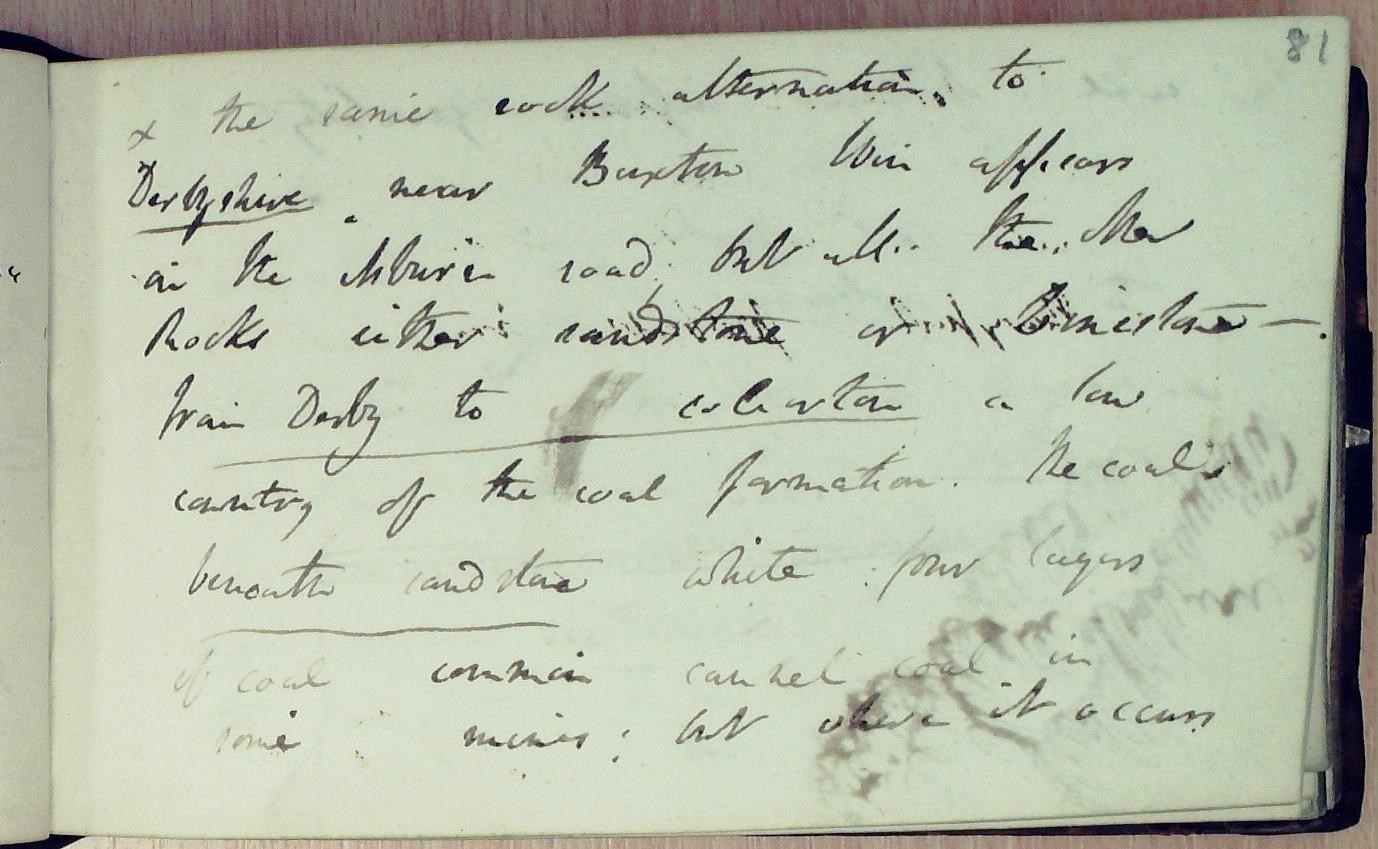 81
x the same rock alternation, to
Derbyshire near Buxton appears
in the Ashburn road, but all the other
Rocks either sandstone or limestone —.
from Derby to coleorton a low
country of the coal formation. The coal is
beneath sandstone white four layers
of coal common cannel coal in
some mines; but where it occurs